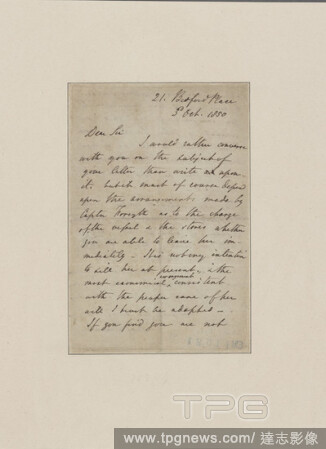 21. Bedford Place
3 Oct. 1850
Dear Sir
I would rather converse
with you on the subject of
your letter than write upon
it. but it must of course depend
upon the arrangements made by
Captn Forsyth as to the charge
of the vessel & the stores whether
you are able to leave her im-
mediately - It is not my intention
to sell her at present, & the
most economical consistent
arrangement
with the proper care of her
will I trust be adopted -
If you find you are not
TPG
www.tpgnews.com / 達志影像